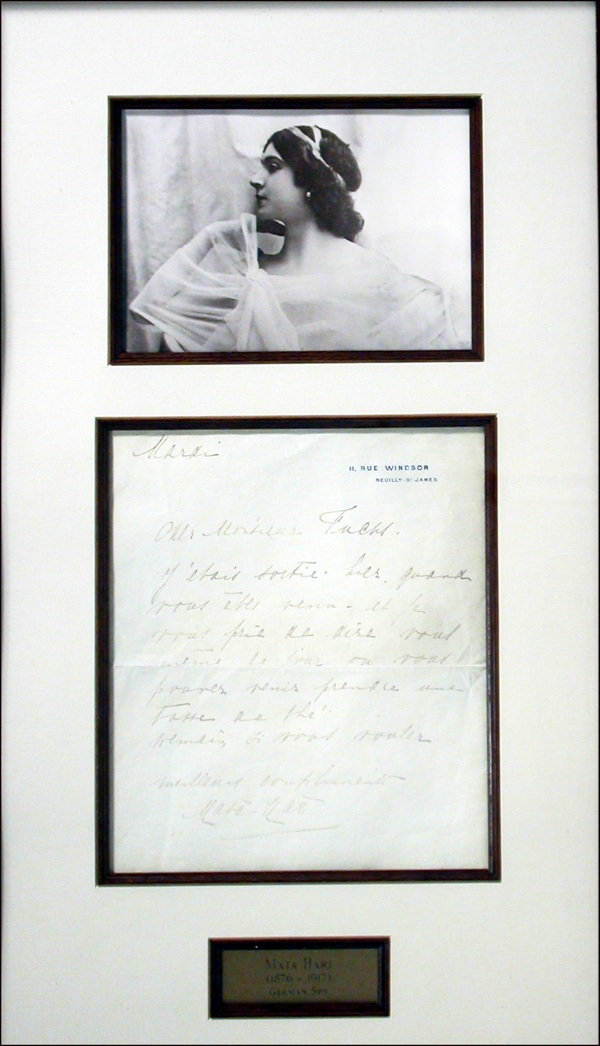 Mardi
11, RUE WINDSOR
NEUILLY-ST JAMES
Cher Monsieur Fuchs.
J'étais sortie hier, quand
vous êtes venu - et je
vous prie de dire vous
même le jour ou vous
pouvez venir prendre une
tasse de thé.
demain si vous voulez
meilleurs compliments
Mata-Hari
MATA HARI
(1876 - 1917)
GERMAN SPY